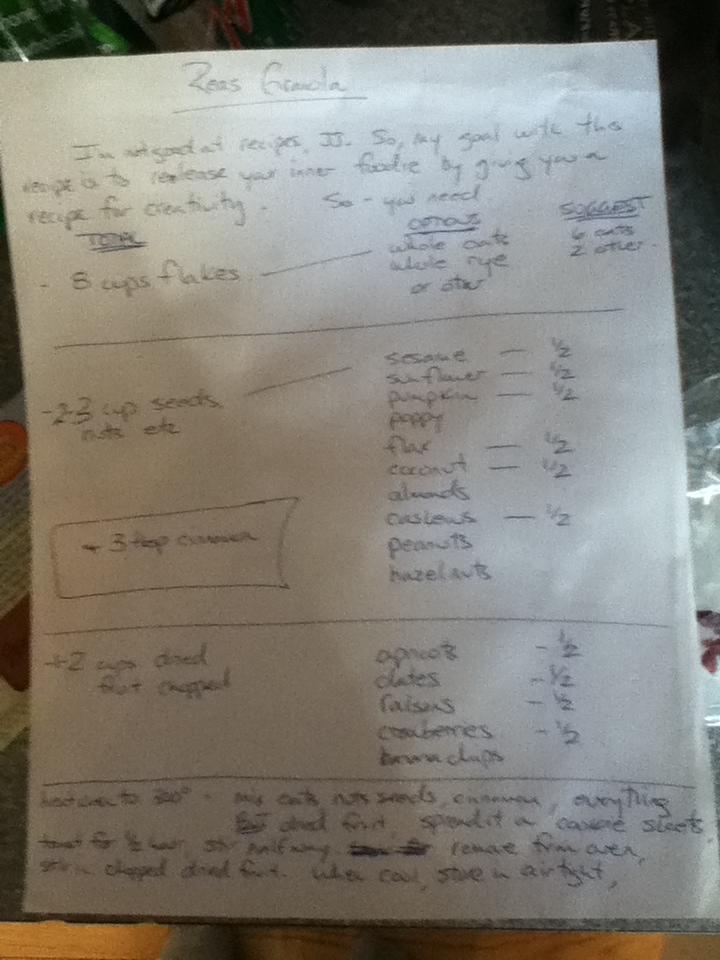 Reas Granola
I'm not good at recipes, JJ. So, my goal with this
recipe is to release your inner foodie by giving you a
recipe for creativity. So - you need
TOTAL OPTIONS SUGGEST
- 8 cups flakes whole oats 6 oats
whole rye 2 other
or other
- 2-3 cup seeds, nuts etc
sesame - 1/2
sunflower - 1/2
pumpkin - 1/2
poppy
flax - 1/2
coconut - 1/2
almonds
cashews - 1/2
peanuts
hazelnuts
+ 3 tsp cinnamon
+2 cups dried
fruit chopped
apricots - 1/2
dates - 1/2
raisins - 1/2
cranberries - 1/2
banana chips
heat oven to - mix oats nuts seeds, cinnamon, everything
but dried fruit. spread it on cookie sheets
toast for 1/2 hour, stir halfway remove from oven,
stir in chopped dried fruit. When cool, store in air tight,